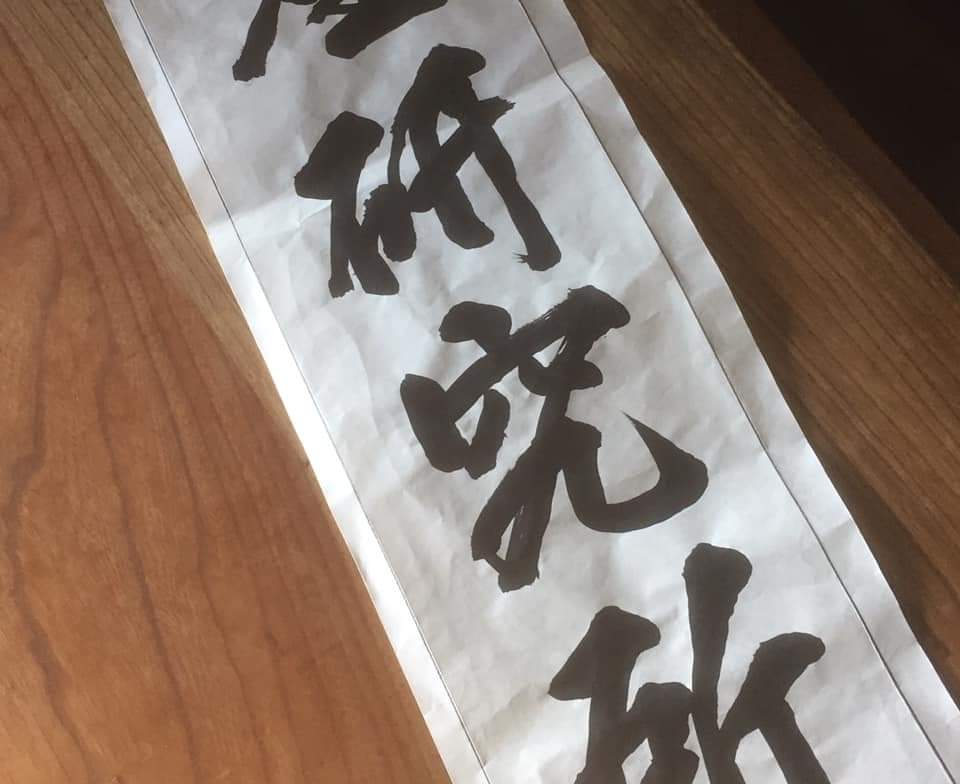 研究所